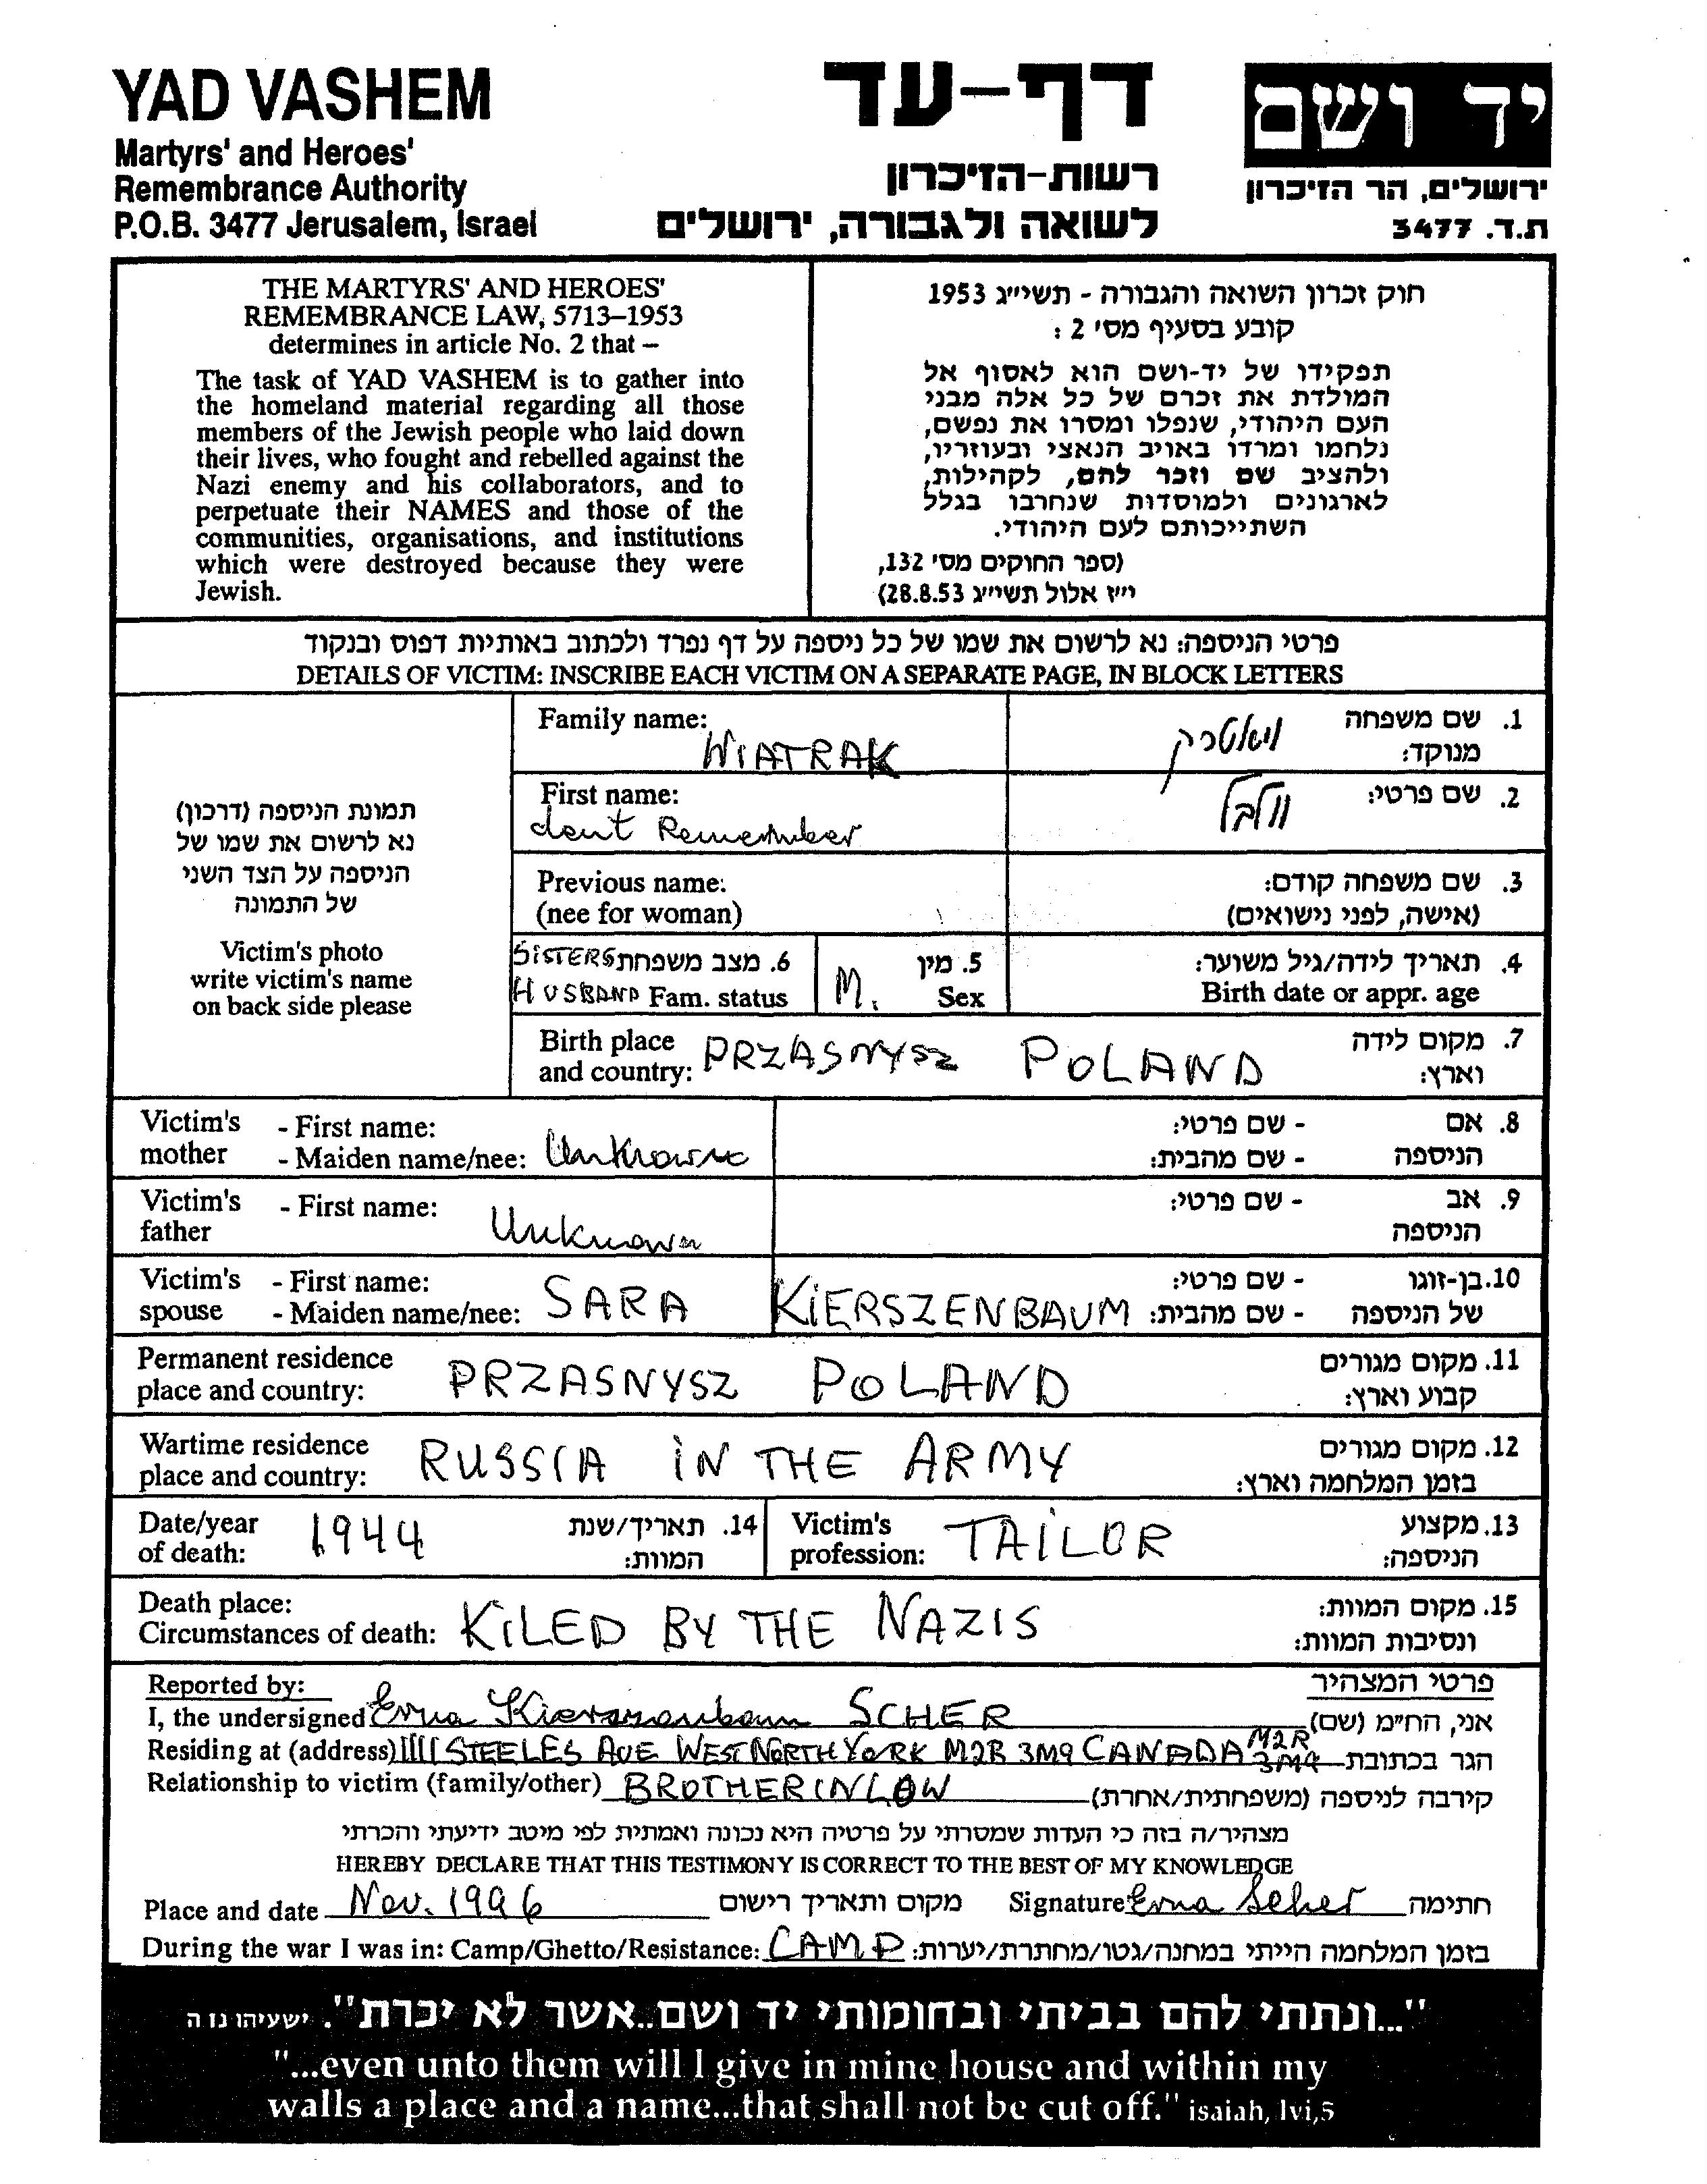 YAD VASHEM
Martyrs' and Heroes'
Remembrance Authority
P.O.B. 3477 Jerusalem, Israel
דף-עד
רשות-הזיכרון
לשואה ולגבורה, ירושלים
יד ושם
ירושלים, הר הזיכרון
ת.ד. 3477
THE MARTYRS' AND HEROES'
REMEMBRANCE LAW, 5713–1953
determines in article No. 2 that –
The task of YAD VASHEM is to gather into
the homeland material regarding all those
members of the Jewish people who laid down
their lives, who fought and rebelled against the
Nazi enemy and his collaborators, and to
perpetuate their NAMES and those of the
communities, organisations, and institutions
which were destroyed because they were
Jewish.
חוק זכרון השואה והגבורה - תשי״ג 1953
קובע בסעיף מס׳ 2 :
תפקידו של יד-ושם הוא לאסוף אל
המולדת את זכרם של כל אלה מבני
העם היהודי, שנפלו ומסרו את נפשם,
נלחמו ומרדו באויב הנאצי ובעוזריו,
ולהציב שם וזכר להם, לקהילות,
לארגונים ולמוסדות שנחרבו בגלל
השתייכותם לעם היהודי.
(ספר החוקים מס׳ 132,
י״ז אלול תשי״ג 28.8.53)
פרטי הניספה: נא לרשום את שמו של כל ניספה על דף נפרד ולכתוב באותיות דפוס ובנקוד
DETAILS OF VICTIM: INSCRIBE EACH VICTIM ON A SEPARATE PAGE, IN BLOCK LETTERS
תמונת הניספה (דרכון)
נא לרשום את שמו של
הניספה על הצד השני
של התמונה
Victim's photo
write victim's name
on back side please
Family name: WIATRAK
ויאטרק
1. שם משפחה
מנוקד:
First name:
dont Remember
וולבל
2. שם פרטי:
Previous name:
(nee for woman)
3. שם משפחה קודם:
(אישה, לפני נישואים)
SISTERS 6. מצב משפחתי
HUSBAND Fam. status
M. 5. מין
Sex
4. תאריך לידה/גיל משוער:
Birth date or appr. age
Birth place
and country: PRZASNYSZ POLAND
7. מקום לידה
וארץ:
Victim's mother - First name:
- Maiden name/nee: Unknown
8. אם הניספה - שם פרטי:
- שם מהבית:
Victim's father - First name: Unknown
9. אב הניספה - שם פרטי:
Victim's spouse - First name:
- Maiden name/nee: SARA KIERSZENBAUM
10. בן-זוגו של הניספה - שם פרטי:
- שם מהבית:
Permanent residence
place and country: PRZASNYSZ POLAND
11. מקום מגורים
קבוע וארץ:
Wartime residence
place and country: RUSSIA IN THE ARMY
12. מקום מגורים
בזמן המלחמה וארץ:
Date/year
of death: 1944
14. תאריך/שנת
המוות:
Victim's
profession: TAILOR
13. מקצוע
הניספה:
Death place:
Circumstances of death: KILED BY THE NAZIS
15. מקום המוות:
ונסיבות המוות:
Reported by:
פרטי המצהיר
I, the undersigned Erna Kierszenbaum SCHER אני, הח״מ (שם)
Residing at (address) 1111 STEELES AVE WEST NORTH YORK M2R 3M9 CANADA M2R 3M9 הגר בכתובת
Relationship to victim (family/other) BROTHER IN LAW קירבה לניספה (משפחתית/אחרת)
מצהיר/ה בזה כי העדות שמסרתי על פרטיה היא נכונה ואמתית לפי מיטב ידיעתי והכרתי
HEREBY DECLARE THAT THIS TESTIMONY IS CORRECT TO THE BEST OF MY KNOWLEDGE
Place and date Nov. 1996 מקום ותאריך רישום Signature Erna Scher חתימה
During the war I was in: Camp/Ghetto/Resistance: CAMP בזמן המלחמה הייתי במחנה/גטו/מחתרת/יערות:
"...ונתתי להם בביתי ובחומותי יד ושם..אשר לא יכרת". ישעיהו נו ה
"...even unto them will I give in mine house and within my
walls a place and a name...that shall not be cut off." isaiah, lvi,5